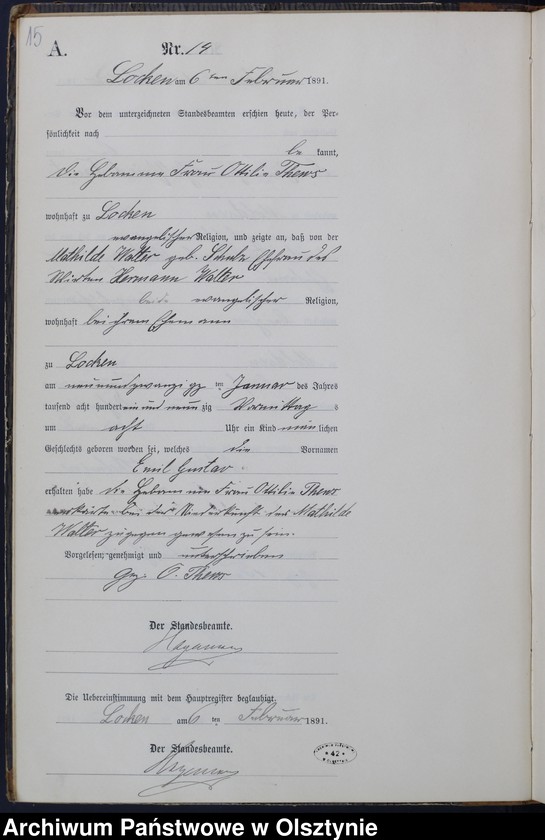 15
A. Nr. 14
Locken am 6 ten Februar 1891.
Vor dem unterzeichneten Standesbeamten erschien heute, der Per-
sönlichkeit nach
be kannt,
die Hebamme Frau Ottilie Thews
wohnhaft zu Locken
evangelischer Religion, und zeigte an, daß von der
Mathilde Walter geb. Schulz Ehefrau des
Wirten Hermann Walter
beide evangelischer Religion,
wohnhaft bei ihrem Ehemann
zu Locken
am neunundzwanzigsten ten Januar des Jahres
tausend acht hundert ein und neun zig Vormittag s
um acht Uhr ein Kind männlichen
Geschlechts geboren worden sei, welches die Vornamen
Emil Gustav
erhalten habe die Hebamme Frau Ottilie Thews
erklärte bei der Niederkunft der Mathilde
Walter zugegen gewesen zu sein.
Vorgelesen, genehmigt und unterschrieben
gez. O. Thews
Der Standesbeamte.
Die Uebereinstimmung mit dem Hauptregister beglaubigt.
Locken am 6 ten Februar 1891.
Der Standesbeamte.
42
Archiwum Państwowe w Olsztynie